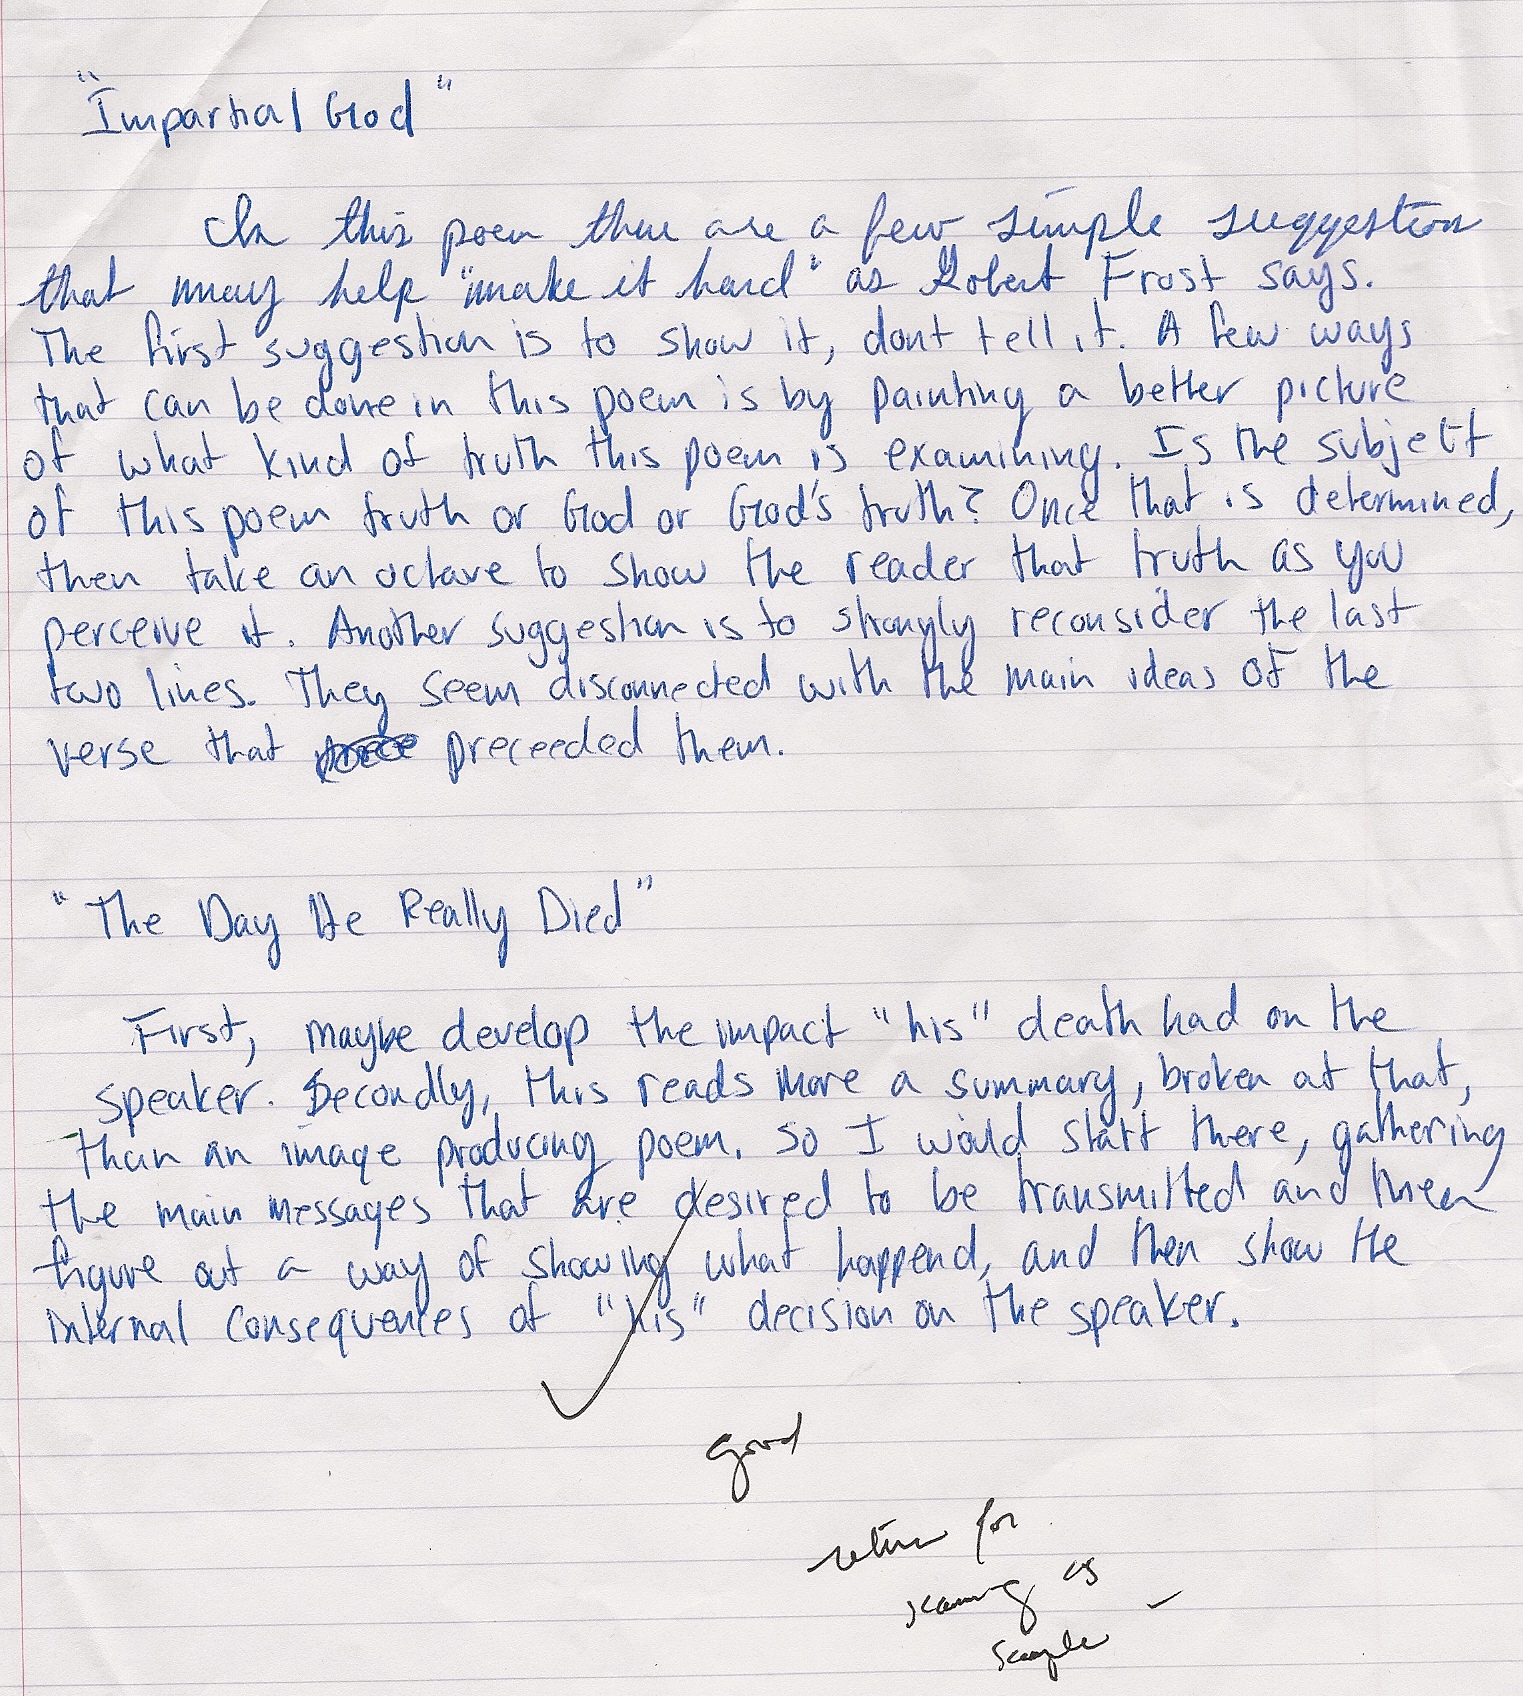 "Impartial God"
In this poem there are a few simple suggestion
that may help "make it hard" as Robert Frost says.
The first suggestion is to show it, dont tell it. A few ways
that can be done in this poem is by painting a better picture
of what kind of truth this poem is examining. Is the subject
of this poem truth or God or God's truth? Once that is determined,
then take an octave to show the reader that truth as you
perceive it. Another suggestion is to strongly reconsider the last
two lines. They seem disconnected with the main ideas of the
verse that preceeded them.
"The Day He Really Died"
First, maybe develop the impact "his" death had on the
speaker. Secondly, this reads more a summary, broken at that,
than an image producing poem. So I would start there, gathering
the main messages that are desired to be transmitted and then
figure out a way of showing what happend, and then show the
internal consequences of "his" decision on the speaker.
good
return for
scanning as
sample –